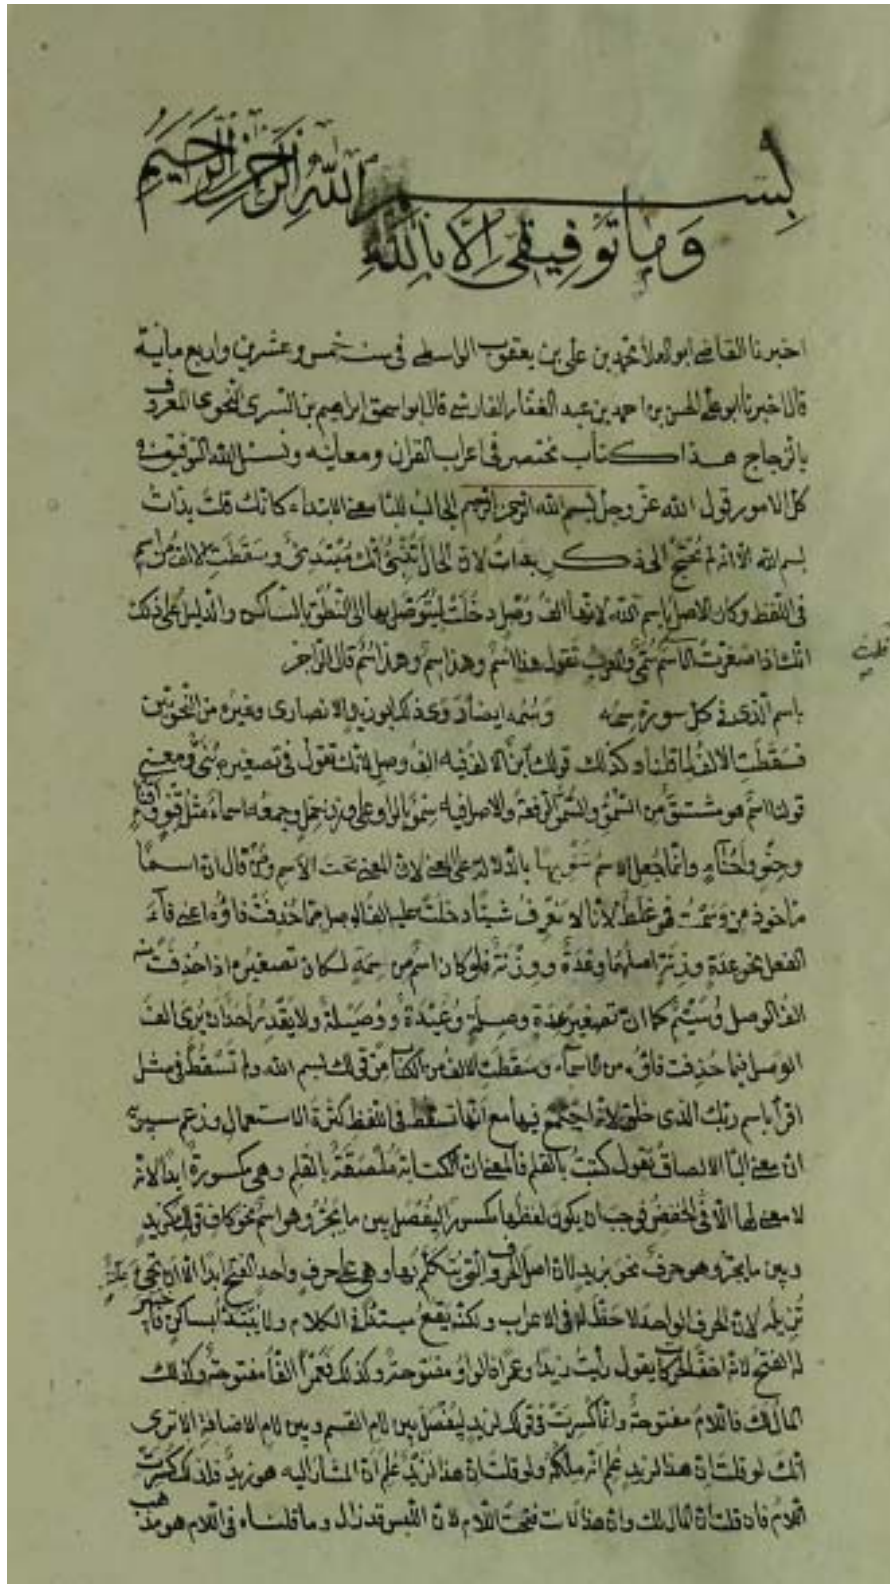 بسم الله الرحمن الرحيم
وما توفيقي الا بالله
اخبرنا القاضي ابو العلا محمد بن علي بن يعقوب الواسطي في سنة خمس وعشرين واربع ماية
قال اخبرنا ابو علي الحسن بن احمد بن عبد الغفار الفارسي قال ابو اسحق ابراهيم بن السري النحوي المعروف
بالزجاج هذا كتاب مختصر في اعراب القران ومعانيه ونسئل الله التوفيق في
كل الامور قول الله عز وجل بسم الله الرحمن الرحيم الجالب للبا معنى الابتداء كانك قلت بدأت
بسم الله الا انه لم يحتج الى ذكر بدات لان الحال تنبئ انك مبتدئ وسقطت الالف من اسم
في اللفظ وكان الاصل باسم الله لانها الف وصل دخلت ليتوصل بها الى النطق بالساكن والدليل على ذلك
انك اذا صغرت الاسم سمي والعرب تقول هذا اسم وهذا سم قال الراجز
قلت
باسم الذي في كل سورة سمه وسمه ايضا روى ذلك ابو زيد الانصارى وغيره من النحويين
فسقطت الالف لما قلنا وكذلك قولك ابن الالف فيه الف وصل لانك تقول في تصغيره بني ومعنى
قولنا اسم هو مشتق من السمو والسمو الرفعة والاصل فيه سمو بالواو على وزن حمل وجمعه اسماء مثل قنو واقناء
وحنو واحناء وانما جعل الاسم تنويها بالدلالة على المعنى لان المعنى تحت الاسم ومن قال ان اسما
ماخوذ من وسمت فهو غلط لانا لا نعرف شيئا دخلت عليه الف الوصل مما حذفت فاؤه اعني فاء
الفعل نحو عدة وزنة اصلهما وعدة ووزنة فلو كان اسم من سمة لكان تصغيره اذا حذفت منه
الف الوصل وسيم كما ان تصغير عدة وصلة وعيدة ووصيلة ولا يقدر احد ان يرى الف
الوصل فيما حذفت فاؤه من الاسماء وسقطت الالف من الكتاب من قولك بسم الله ولم تسقط في مثل
اقرأ باسم ربك الذي خلق لانه اجتمع فيها مع انها تسقط في اللفظ كثرة الاستعمال وزعم سيبويه
ان معنى البا الالصاق تقول كتبت بالقلم فالمعنى ان الكتابة ملصقة بالقلم وهي مكسورة ابدا لانه
لا معنى لها الا في الخفض فوجب ان يكون لفظها مكسورا ليفصل بين ما يجر وهو اسم نحو كاف قولك كزيد
وبين ما يجر وهو حرف نحو بزيد لان اصل الحروف التي يتكلم بها وهي على حرف واحد الفتح ابدا الا ان تجئ علة
تزيله لان الحرف الواحد لا حظ له في الاعراب ولكنه يقع مبتدأ في الكلام ولا يبتدأ بساكن فاختير
له الفتح لانه اخف الحركات يقول رأيت زيدا وعمرا فالواو مفتوحة وكذلك فعمرا الفا مفتوحة وكذلك
المال لك فاللام مفتوحة وانما كسرت في قولك لزيد ليفصل بين لام القسم وبين لام الاضافة الا ترى
انك لو قلت ان هذا لزيد علم انه ملكه ولو قلت ان هذا لزيد علم ان المشار اليه هو زيد فلذلك كسرت
اللام فان قلت ان المال لك وان هذا لانت فتحت اللام لان اللبس قد زال وما قلناه في اللام هو مذهب